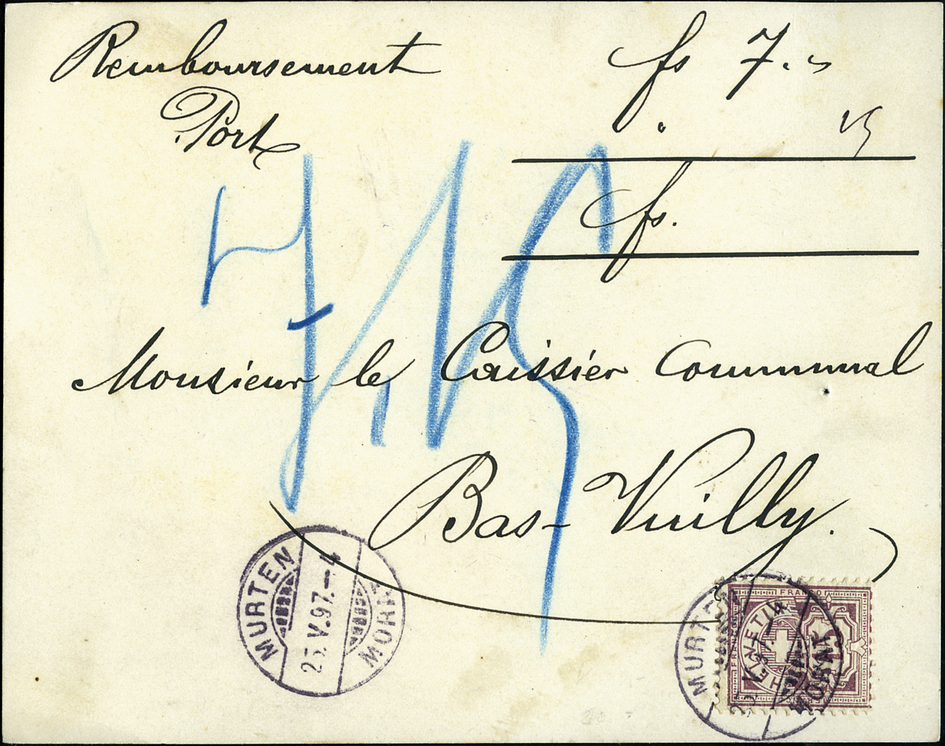 Remboursement fs 7.–
Port 15
fs.
7,15
Monsieur le Caissier Communal
Bas-Vuilly.
MURTEN
MORAT
25.V.97.–4
MURTEN
MORAT
FRANCO
HELVETIA
15